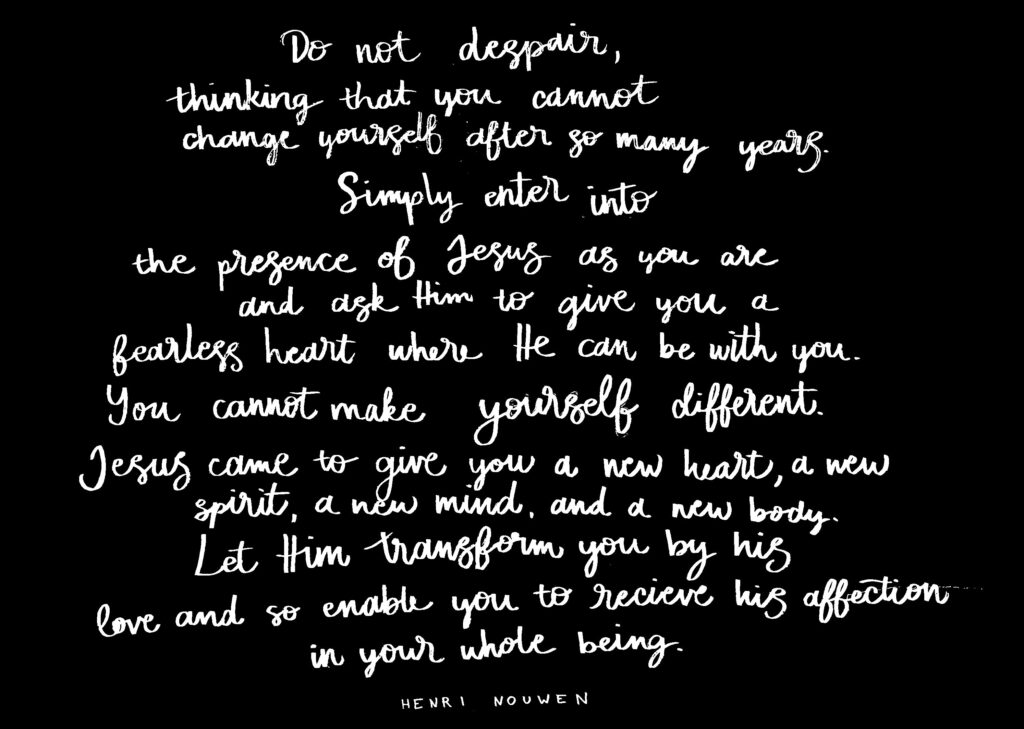 Do not despair,
thinking that you cannot
change yourself after so many years.
Simply enter into
the presence of Jesus as you are
and ask Him to give you a
fearless heart where He can be with you.
You cannot make yourself different.
Jesus came to give you a new heart, a new
spirit, a new mind, and a new body.
Let Him transform you by his
love and so enable you to recieve his affection
in your whole being.
HENRI NOUWEN